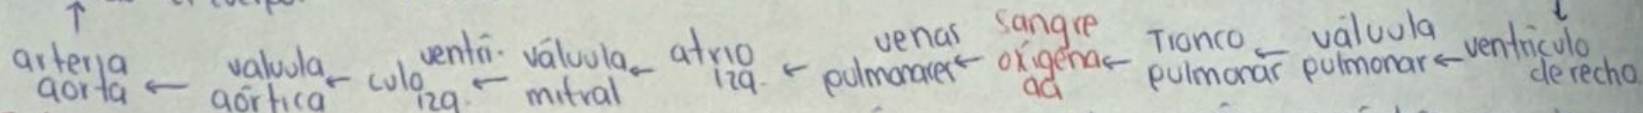 arteria aorta ← valvula aórtica ← ventrí-culo izq. ← válvula mitral ← atrio izq. ← venas pulmonares ← sangre oxigenada ← Tronco pulmonar ← válvula pulmonar ← ventriculo derecho